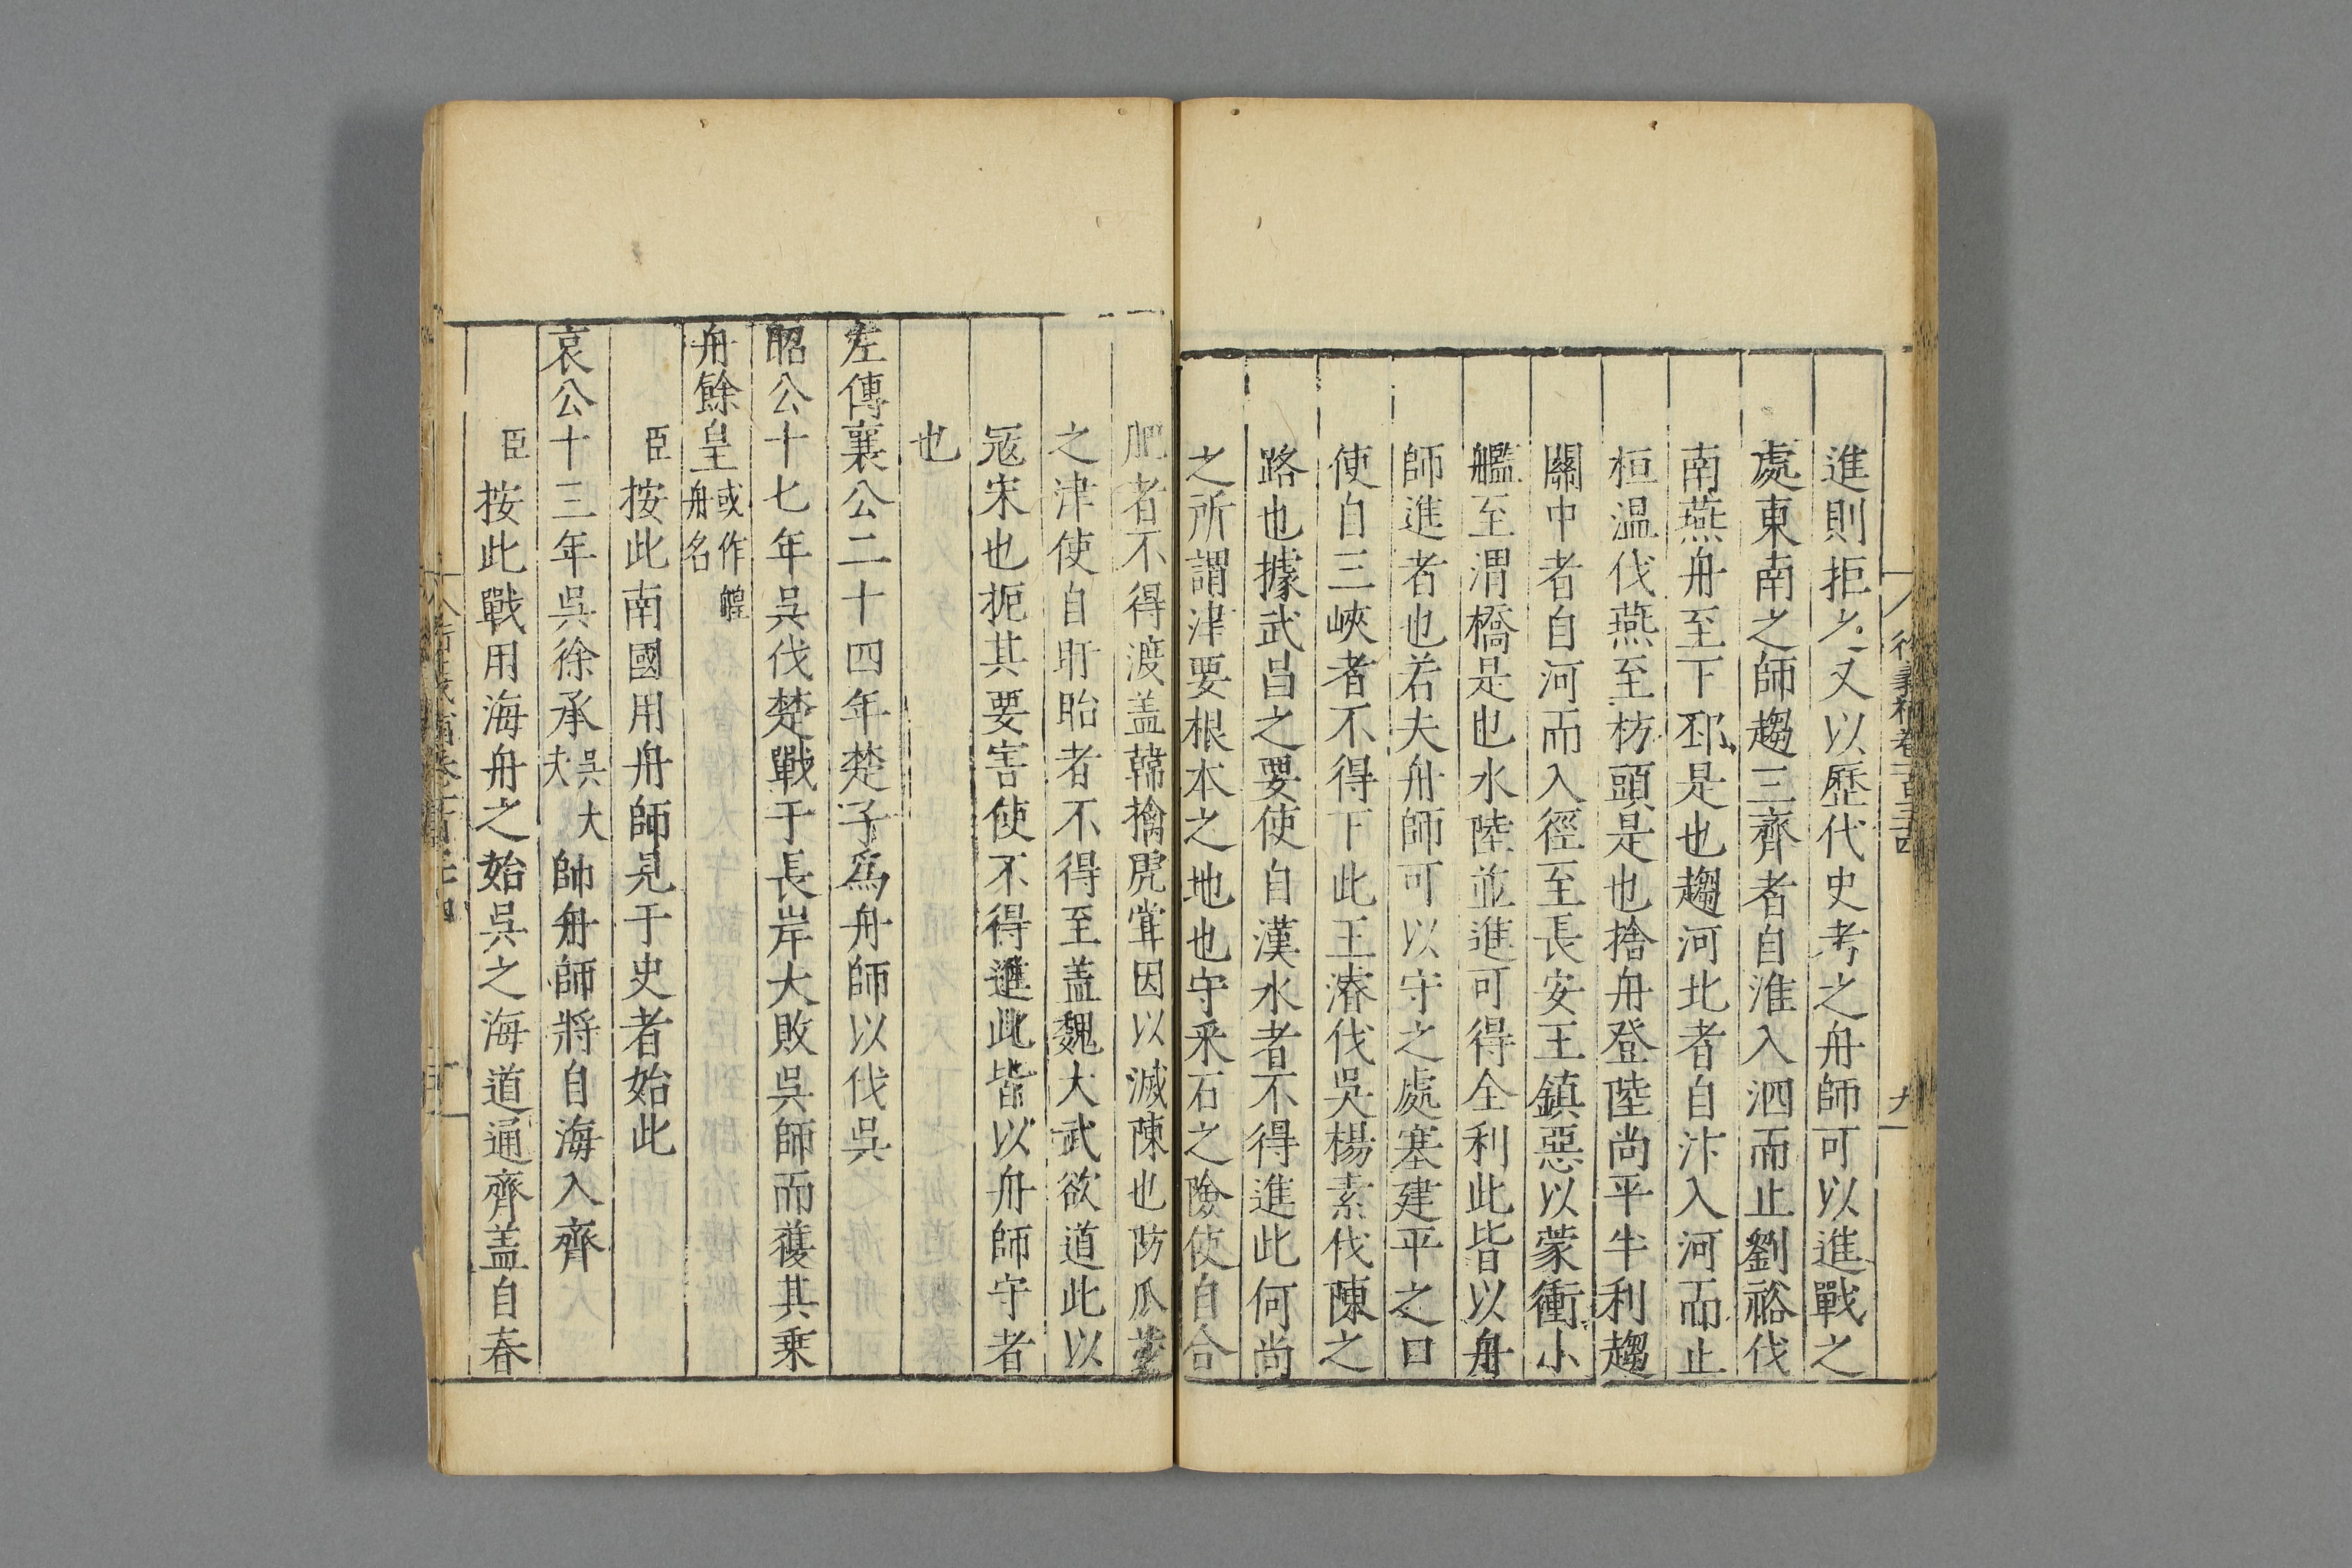 進則拒之又以歷代史考之舟師可以進戰之
處東南之師趨三齊者自淮入泗而止劉裕伐
南燕舟至下邳是也趨河北者自汴入河而止
桓温伐燕至枋頭是也捨舟登陸尚平牛利趨
關中者自河而入徑至長安王鎮惡以蒙衝小
艦至渭橋是也水陸並進可得全利此皆以舟
師進者也若夫舟師可以守之處塞建平之口
使自三峽者不得下此王濬伐吳楊素伐陳之
路也據武昌之要使自漢水者不得進此何尚
之所謂津要根本之地也守采石之險使自合
肥者不得渡盖韓擒虎嘗因以滅陳也防瓜
之津使自盱眙者不得至盖魏太武欲道此以
冦宋也扼其要害使不得進此皆以舟師守者
也
左傳襄公二十四年楚子爲舟師以伐吳
昭公十七年吳伐楚戰于長岸大敗吳師而獲其乗
舟餘皇或作艎舟名
臣按此南國用舟師見于史者始此
哀公十三年吳徐承吳大夫帥舟師將自海入齊
臣按此戰用海舟之始吳之海道通齊盖自春